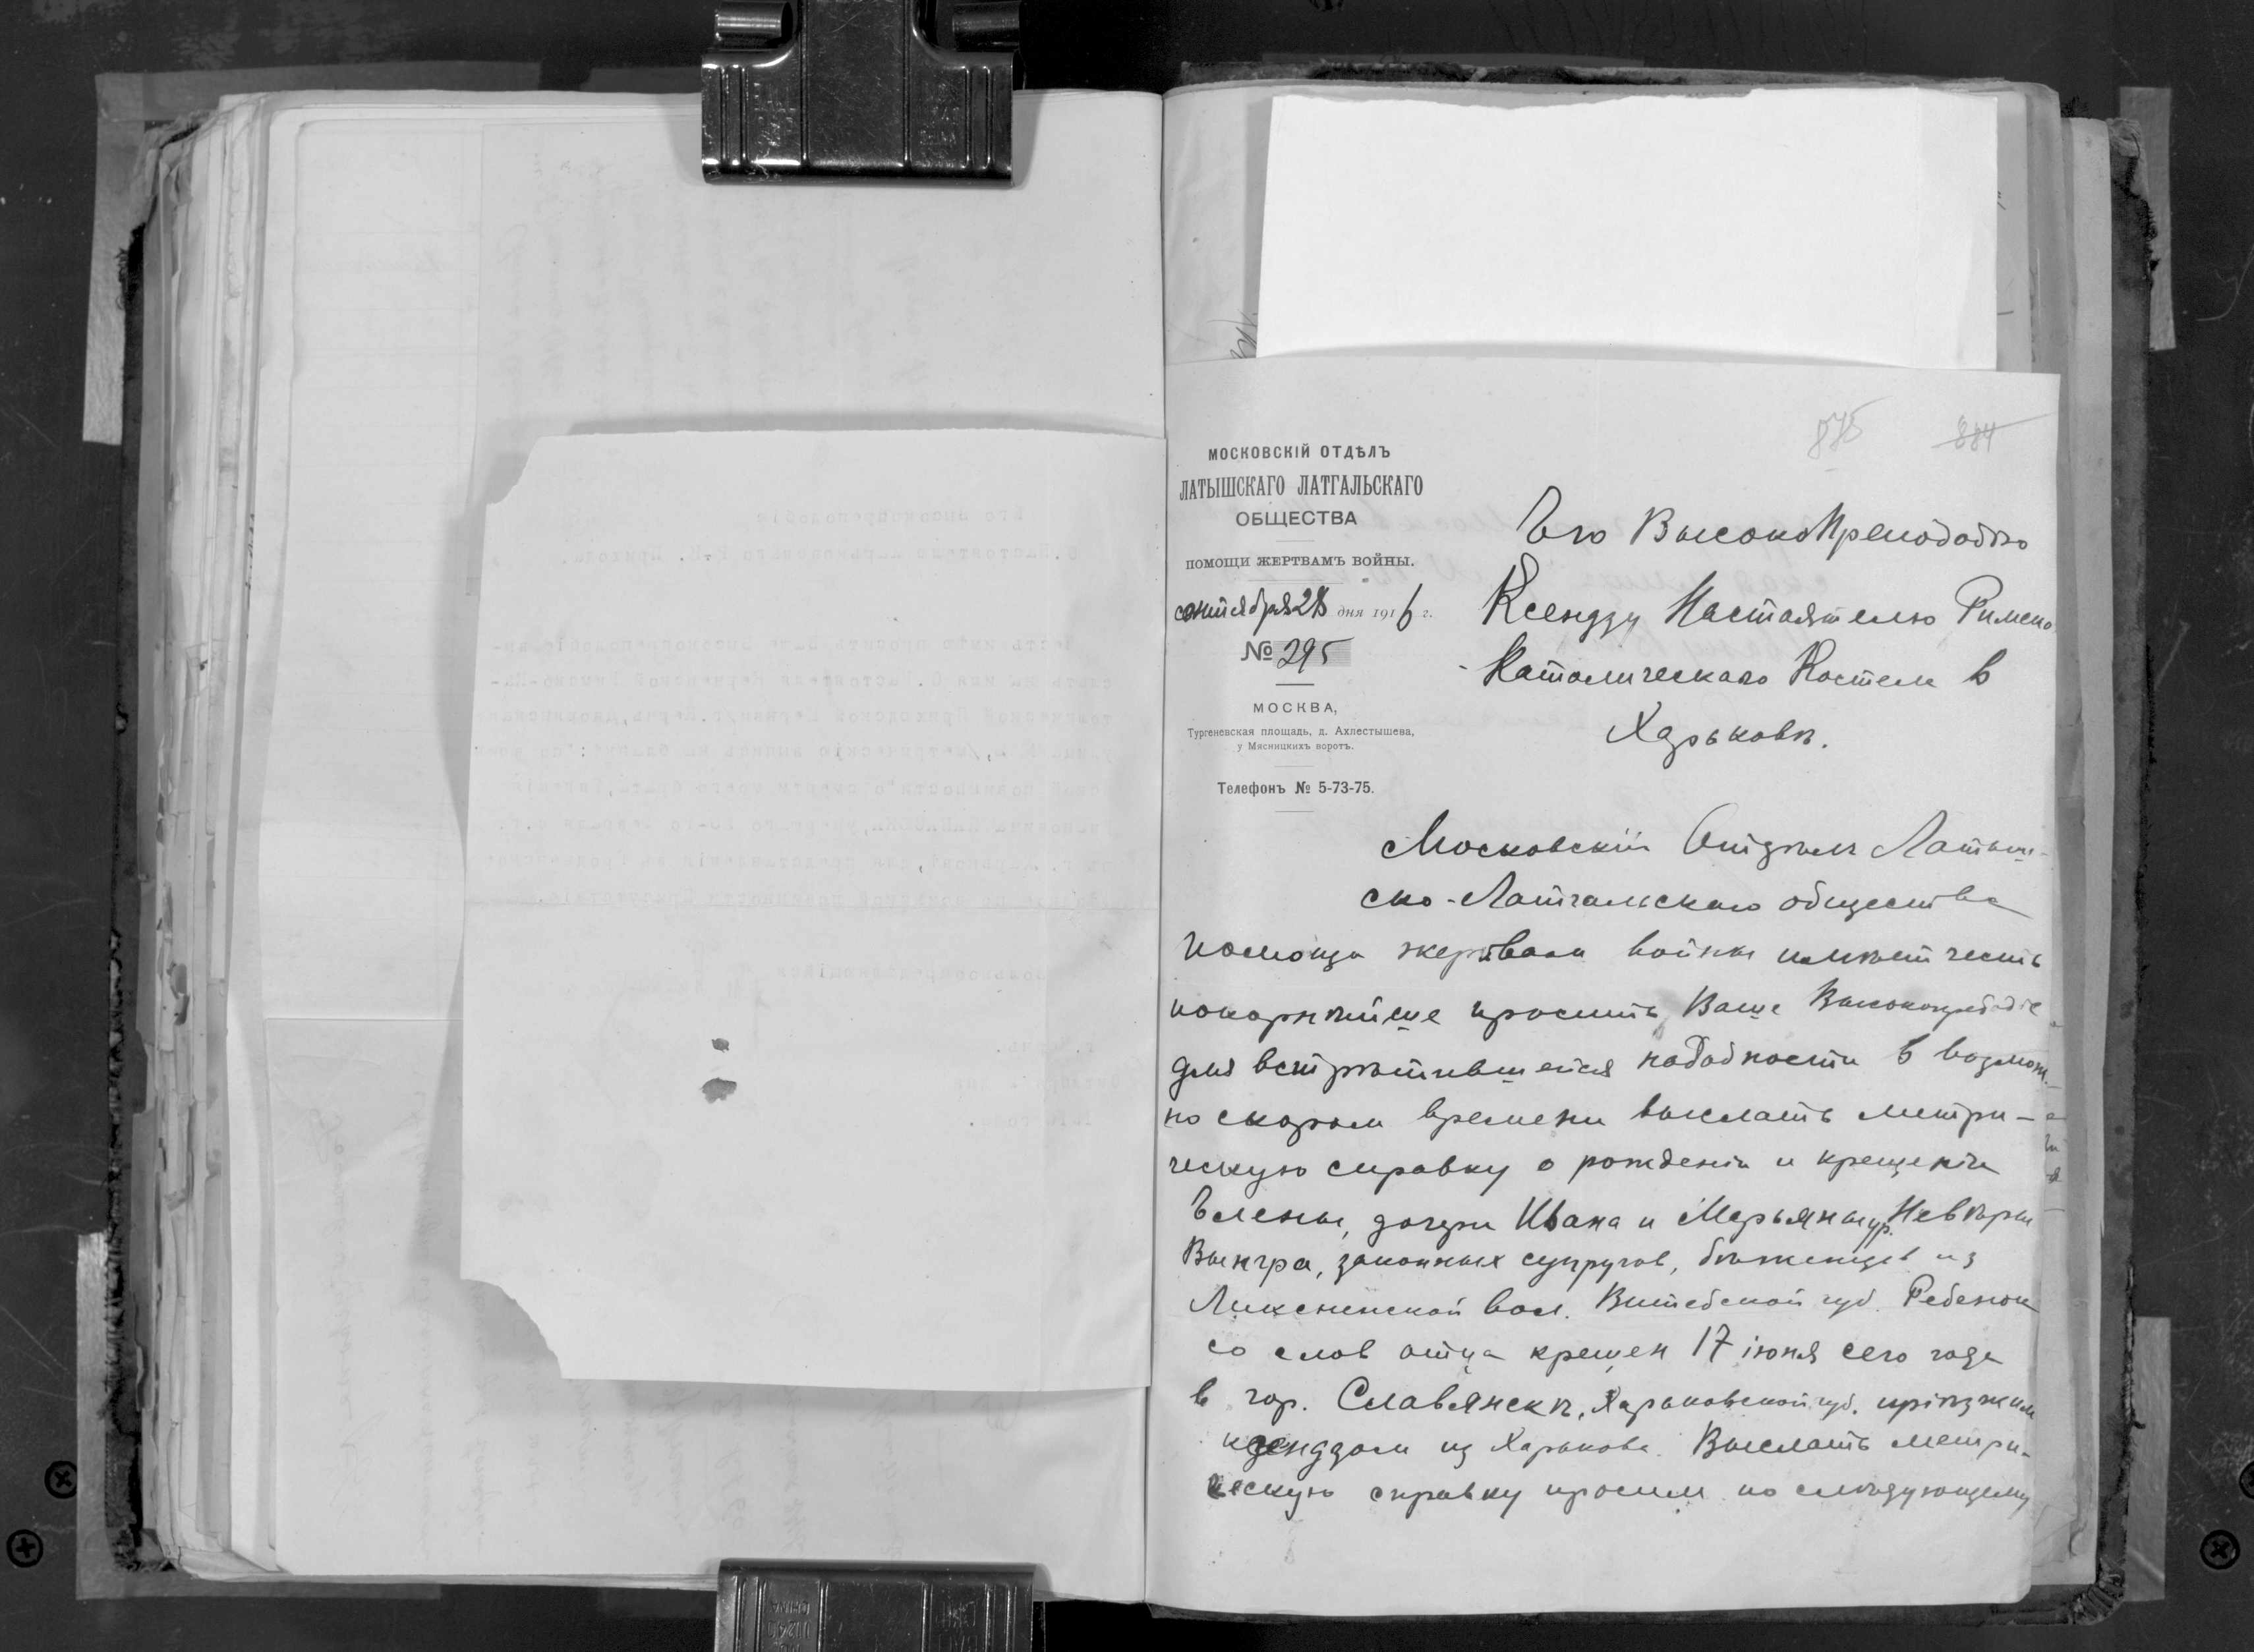 875 884
МОСКОВСКІЙ ОТДѢЛЪ
ЛАТЫШСКАГО ЛАТГАЛЬСКАГО
ОБЩЕСТВА
ПОМОЩИ ЖЕРТВАМЪ ВОЙНЫ.
сентября 28 дня 1916 г.
№ 295
МОСКВА,
Тургеневская площадь, д. Ахлестышева,
у Мясницкихъ воротъ.
Телефонъ № 5-73-75.
Его ВысокоПреподобію
Ксендзу Настоятелю Римско
-Католическаго Костела в
Харьковѣ.
Московскій Отдѣлъ Латыш-
ско-Латгальскаго общества
помощи жертвам войны имѣет честь
покорнѣйше просить Ваше
для встрѣтившейся надобности в возмож-
но скором времени выслать метри-
ческую справку о рожденіи и крещеніи
Елены, дочери Ивана и Марьяны ур.
Вынгра, законных супругов, бѣженцев из
Ликсненской вол. Витебской губ. Ребенок
со слов отца крещен 17 іюня сего года
в гор. Славянскѣ, Харьковской губ. пріѣзжим
ксендзом из Харькова. Выслать метри-
ческую справку просим по слѣдующему